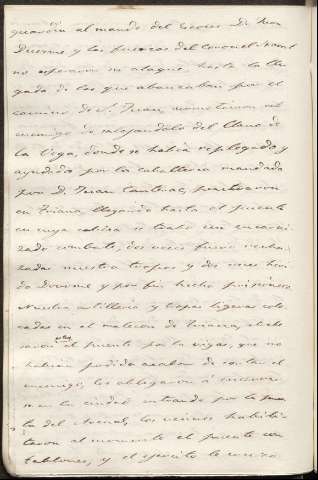 guardia al mando del Escoces D. Juan
Downie y las fuerzas del Coronel
no esperaron su ataque, hasta la lle
gada de los que abanzaban por el
camino de S. Juan, acometieron al
enemigo desalojandolo del llano de
la Vega, donde se habia replegado, y
ayudados por la caballeria mandada
por D. Juan penetraron
en Triana llegando hasta el puente
en cuya cabeza se trabó un encarni
zado combate, dos veces fueron recha
zadas nuestras tropas y dos veces heri
do Downie y por fin hecho prisionero
Nuestra artilleria y tropas ligeras colo
cadas en el malecon de Triana,
el puente por las vigas, que no
habian podido acabar de cortar el
enemigo, les obligaron á encerrar
se en la ciudad entrando por la puer
ta del Arenal, los vecinos habili
taron al momento el puente con
tablones, y el ejercito le cruzó